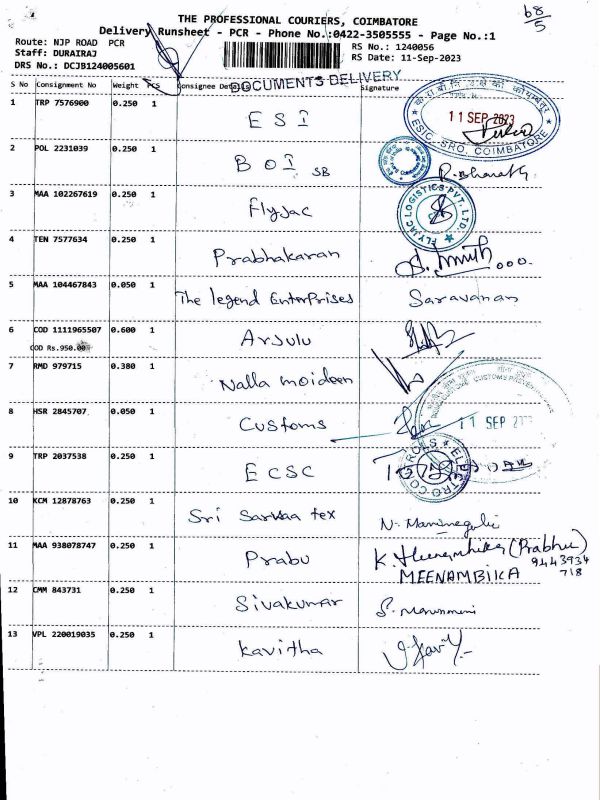 68/5
THE PROFESSIONAL COURIERS, COIMBATORE
Delivery Runsheet - PCR - Phone No.:0422-3505555 - Page No.:1
Route: NJP ROAD PCR
RS No.: 1240056
Staff: DURAIRAJ
RS Date: 11-Sep-2023
DRS No.: DCJB124005601
DOCUMENTS DELIVERY
S No Consignment No Weight PCS Consignee Details Signature
1 TRP 7576900 0.250 1 ESI
11 SEP 2023
ESIC, SRO, COIMBATORE
2 POL 2231039 0.250 1 BOI SB R. Bharath
3 MAA 102267619 0.250 1 Flyjac
FLYJAC LOGISTICS PVT. LTD.
4 TEN 7577634 0.250 1 Prabhakaran
5 MAA 104467843 0.050 1 The legend Enterprises Saravanan
6 COD 1111965507 0.600 1 Arsulu
COD Rs.950.00
7 RMD 979715 0.380 1 Nalla moideen
8 HSR 2845707 0.050 1 Customs
11 SEP
9 TRP 2037538 0.250 1 ECSC
10 KCM 12878763 0.250 1 Sri Sarvaa tex
11 MAA 938078747 0.250 1 Prabu (Prabhu)
9443934
MEENAMBIKA 718
12 CMM 843731 0.250 1 Sivakumar
13 VPL 220019035 0.250 1 Kavitha